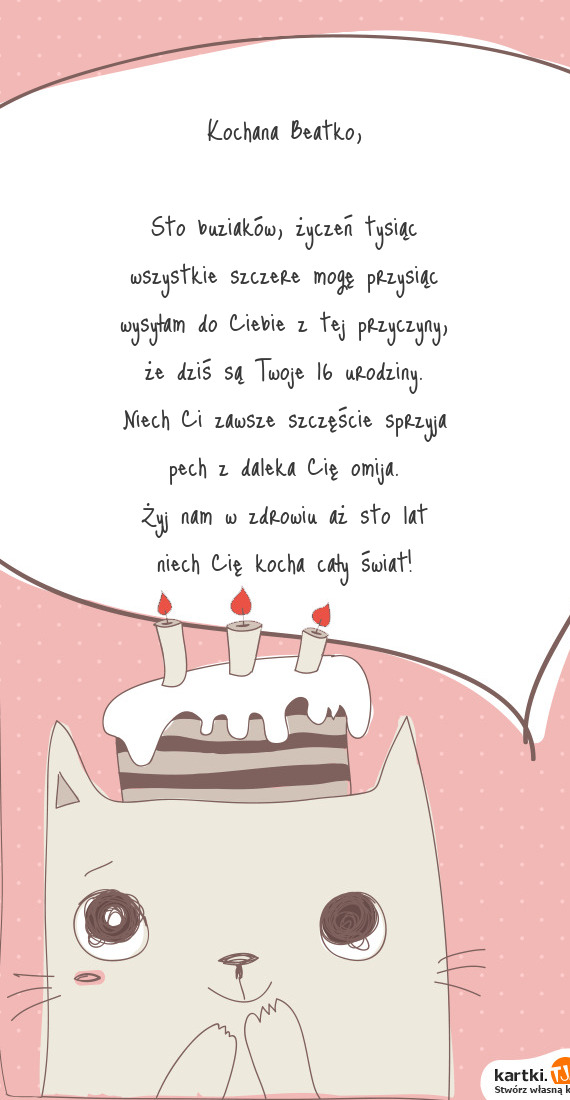 Kochana Beatko,
Sto buziaków, życzeń tysiąc
wszystkie szczere mogę przysiąc
wysyłam do Ciebie z tej przyczyny,
że dziś są Twoje 16 urodziny.
Niech Ci zawsze szczęście sprzyja
pech z daleka Cię omija.
Żyj nam w zdrowiu aż sto lat
niech Cię kocha cały świat!
kartki.TJ
Stwórz własną k